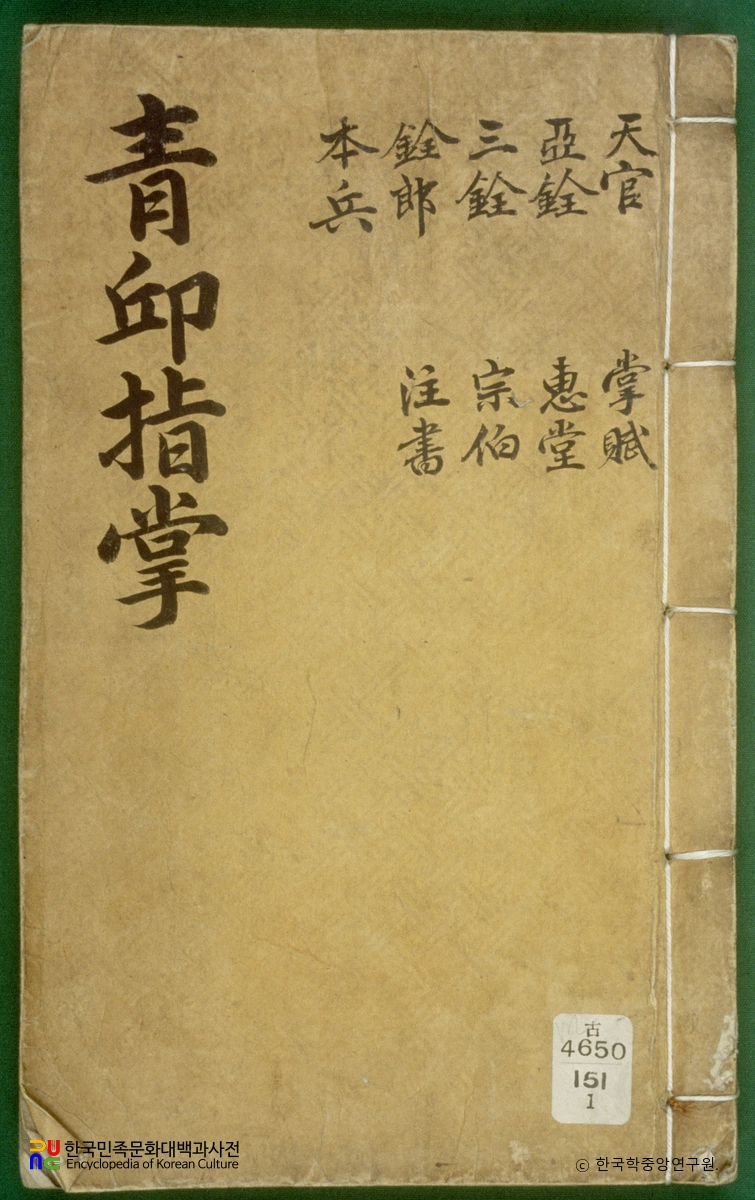 天官
亞銓
三銓
銓郎
本兵
掌賦
惠堂
宗伯
注書
青邱指掌
古
4650
151
1
한국민족문화대백과사전
Encyclopedia of Korean Culture
ⓒ 한국학중앙연구원.